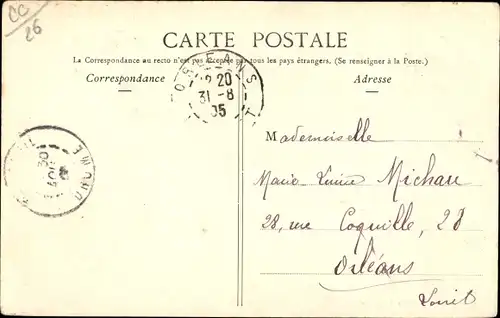 CC
26
CARTE POSTALE
La Correspondance au recto n'est pas acceptée par tous les pays étrangers. (Se renseigner à la Poste.)
Correspondance
Adresse
ORLEANS
12 20
31 - 8
05
DROME
30
Mademoiselle
Marie Louise Michau
28, rue Coquille, 28
Orléans
Loiret